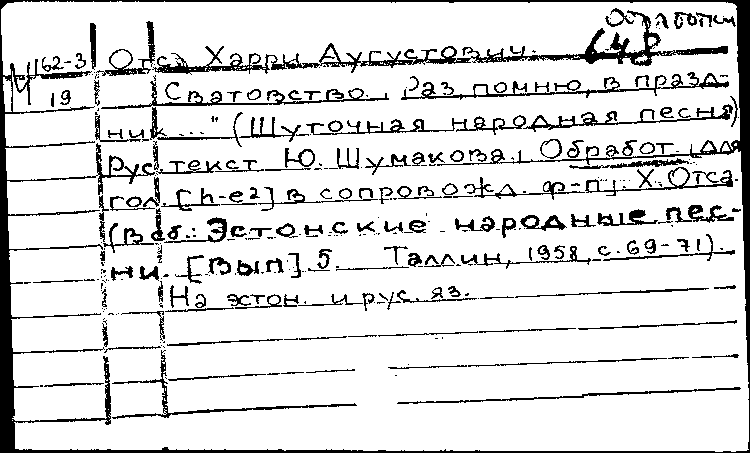 Обработки
М 62-3 Отса Харри Августович. 648
19 Сватовство. "Раз, помню, в празд-
ник..." (Шуточная народная песня)
Рус. текст Ю. Шумакова, Обработ. для
гол. [h-e2] в сопровожд. ф-п; Х. Отса.
(В сб.: Эстонские народные пес-
ни. [Вып] 5. Таллин, 1958, с. 69-71).
На эстон. и рус. яз.